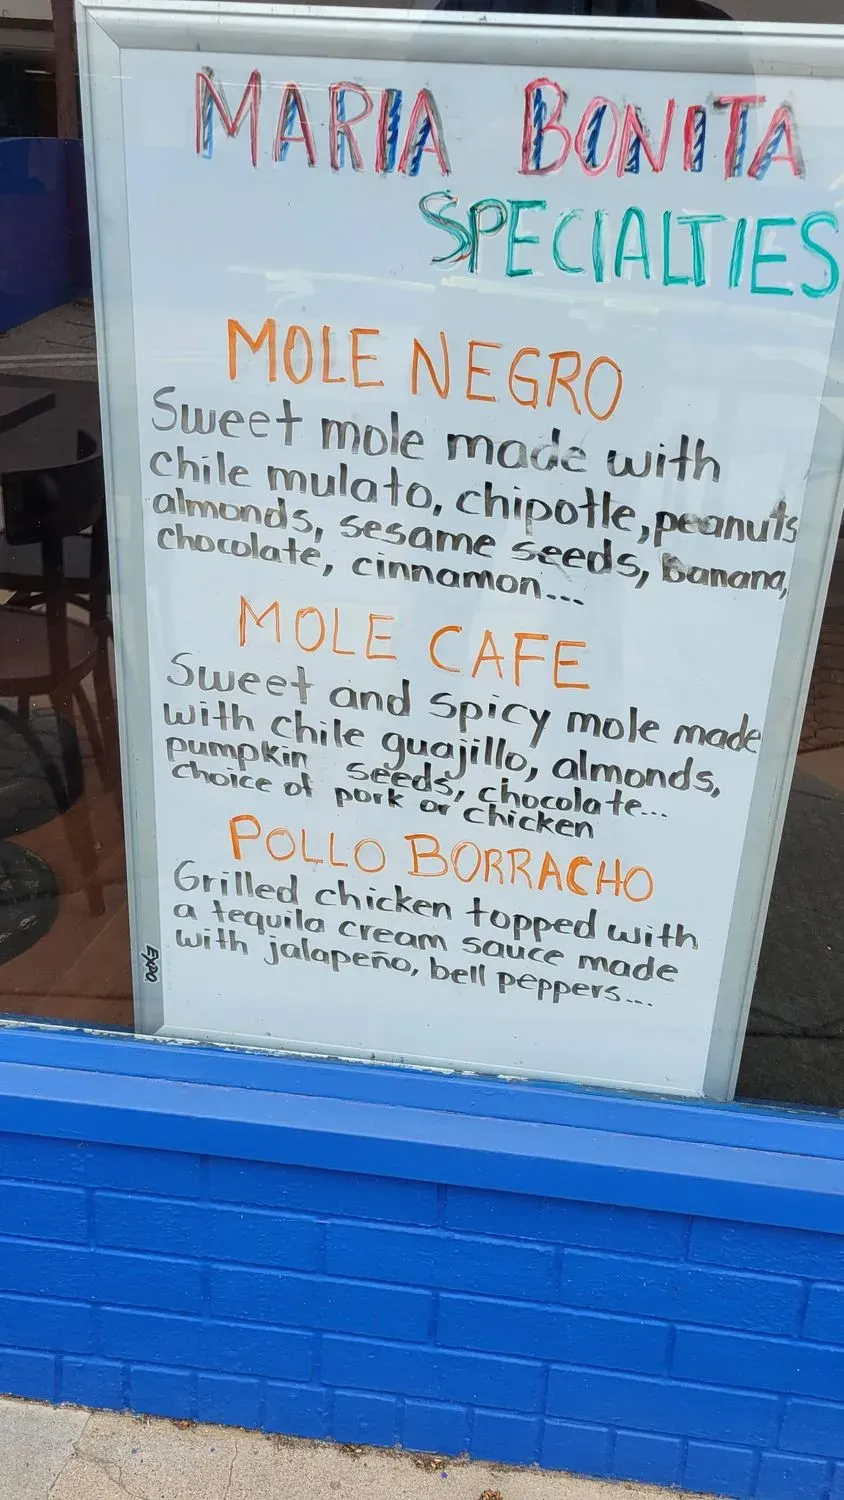 MARIA BONITA
SPECIALTIES
MOLE NEGRO
Sweet mole made with
chile mulato, chipotle, peanuts
almonds, sesame seeds, banana,
chocolate, cinnamon...
MOLE CAFE
Sweet and spicy mole made
with chile guajillo, almonds,
pumpkin seeds, chocolate...
choice of pork or chicken
POLLO BORRACHO
Grilled chicken topped with
a tequila cream sauce made
with jalapeño, bell peppers...
EXPO